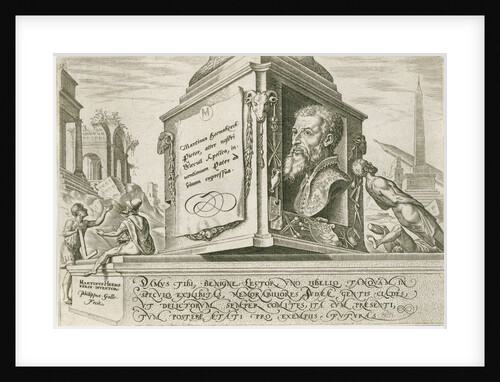 M
Martinus Hemskerck
Pictor, alter nostri
Sæculi Apelles, in-
ventionum Pater ad
vivum expressus.
MARTINUS HEEMS
KERCK INVENTOR.
Philippus Galle
Fecit.
DAMUS TIBI, BENIGNE LECTOR UNO LIBELLO TANQVAM IN
SPECVLO EXHIBITAS, MEMORABILIORES JVDEÆ GENTIS CLADES,
UT DELICTORVM SEMPER COMITES, ITA CVM PRÆSENTI,
TVM POSTERÆ ÆTATI PRO EXEMPLIS FVTVRAS